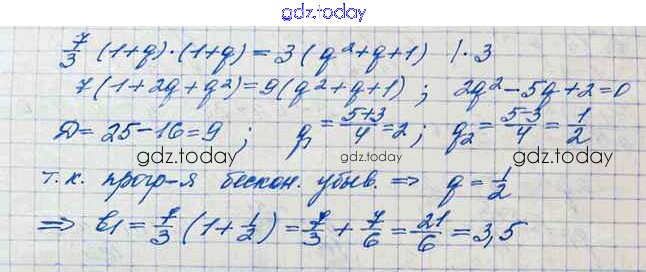 gdz.today
7/3 (1+q)·(1+q) = 3(q²+q+1) |·3
7(1+2q+q²)=9(q²+q+1); 2q²-5q+2=0
D=25-16=9; q₁=(5+3)/4=2; q₂=(5-3)/4=1/2
gdz.today gdz.today gdz.today
т.к. прогр-я бескон. убыв. => q=1/2
=> b₁=7/3(1+1/2)=7/3+7/6=21/6=3,5
gdz.today